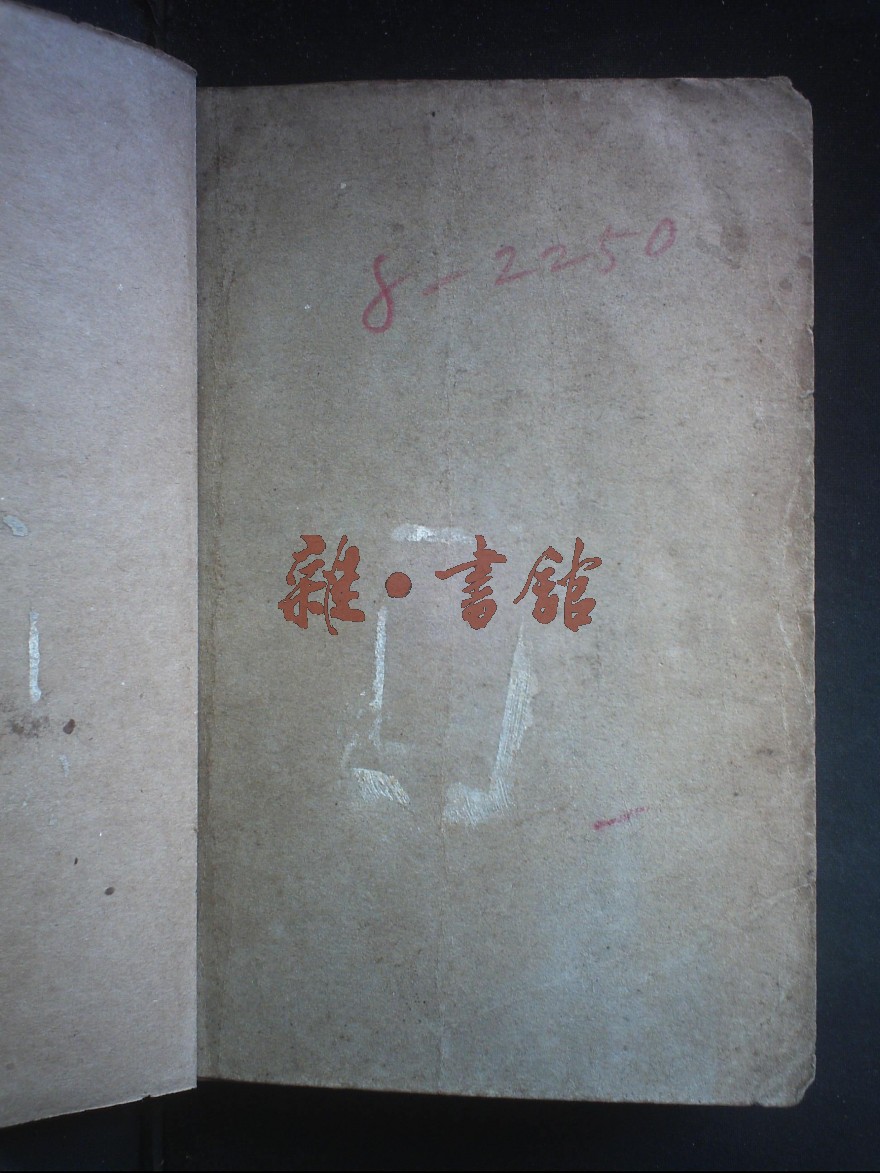 8-2250
雜·書館